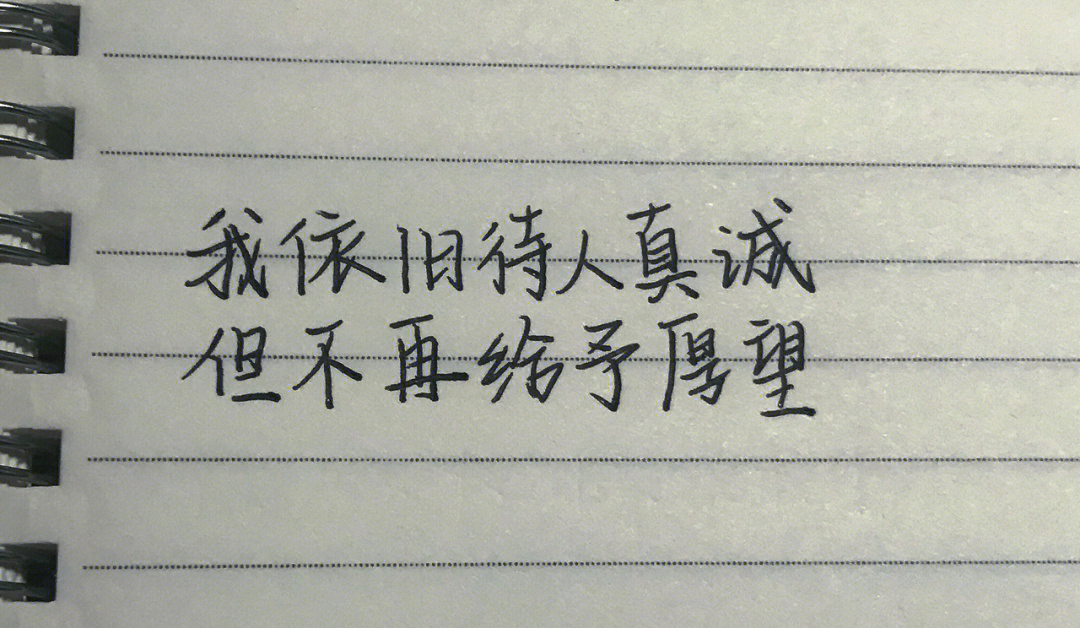 我依旧待人真诚
但不再给予厚望